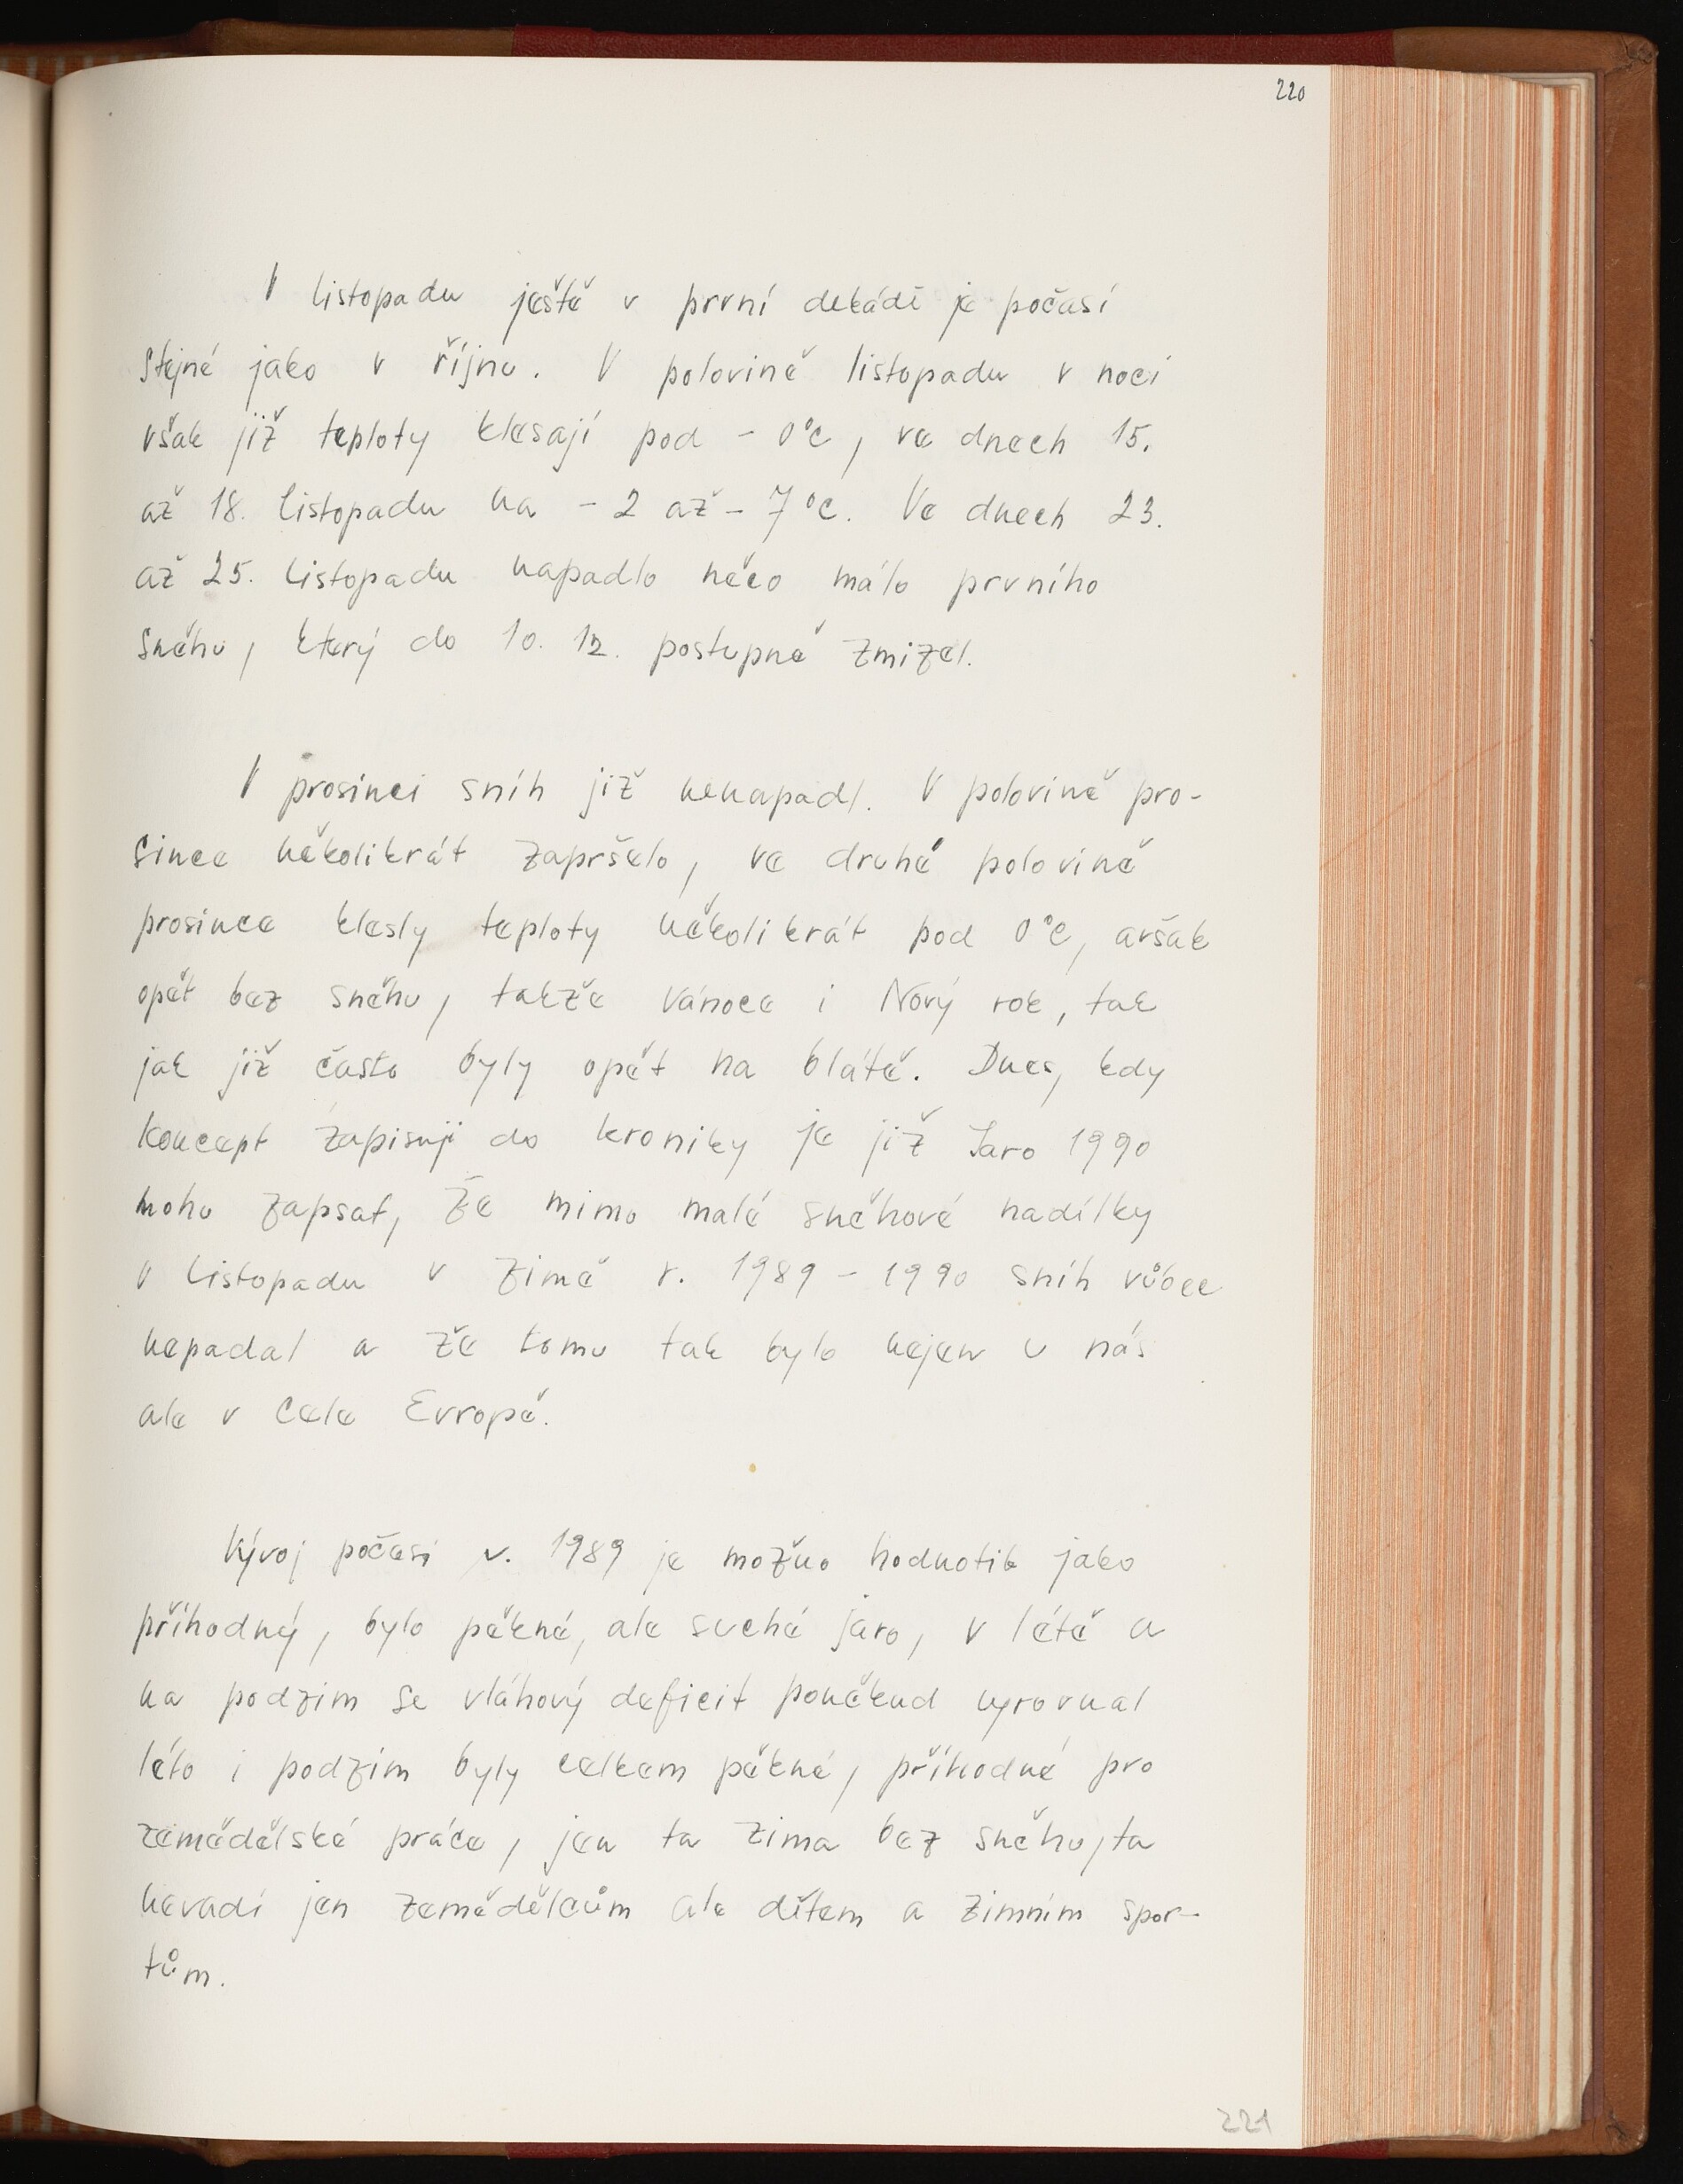 220
V listopadu ještě v první dekádě je počasí
stejné jako v říjnu. V polovině listopadu v noci
však již teploty klesají pod - 0°C, ve dnech 15.
až 18. listopadu na - 2 až - 7°C. Ve dnech 23.
až 25. listopadu napadlo něco málo prvního
sněhu, který do 10. 12. postupně zmizel.
V prosinci sníh již nenapadl. V polovině pro-
since několikrát zapršelo, ve druhé polovině
prosince klesly teploty několikrát pod 0°C, avšak
opět bez sněhu, takže Vánoce i Nový rok, tak
jak již často byly opět na blátě. Dnes, kdy
koncept zapisuji do kroniky je již Jaro 1990
mohu zapsat, že mimo malé sněhové nadílky
v listopadu v zimě r. 1989 - 1990 sníh vůbec
nepadal a že tomu tak bylo nejen u nás
ale v cele Evropě.
Vývoj počasí v. 1989 je možno hodnotit jako
příhodný, bylo pěkné, ale suché jaro, v létě a
na podzim se vláhový deficit poněkud vyrovnal
léto i podzim byly celkem pěkné, příhodné pro
zemědělské práce, jen ta zima bez sněhu, ta
nevadí jen zemědělcům ale dětem a zimním spor-
tům.
221